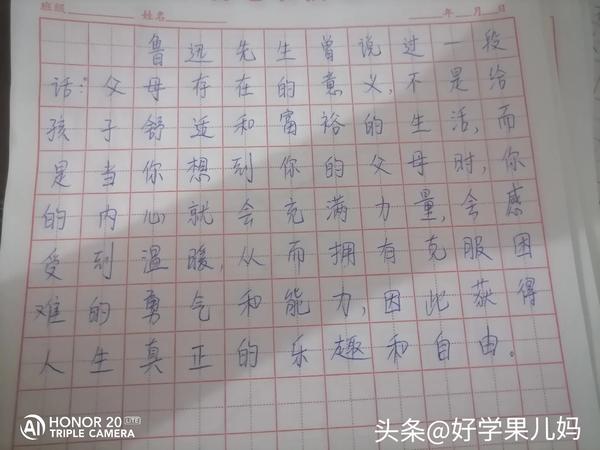 班级 姓名 年 月 日
鲁迅先生曾说过一段
话:父母存在的意义,不是给
孩子舒适和富裕的生活,而
是当你想到你的父母时,你
的内心就会充满力量,会感
受到温暖,从而拥有克服困
难的勇气和能力,因此获得
人生真正的乐趣和自由。
AI HONOR 20 LITE
TRIPLE CAMERA
头条@好学果儿妈